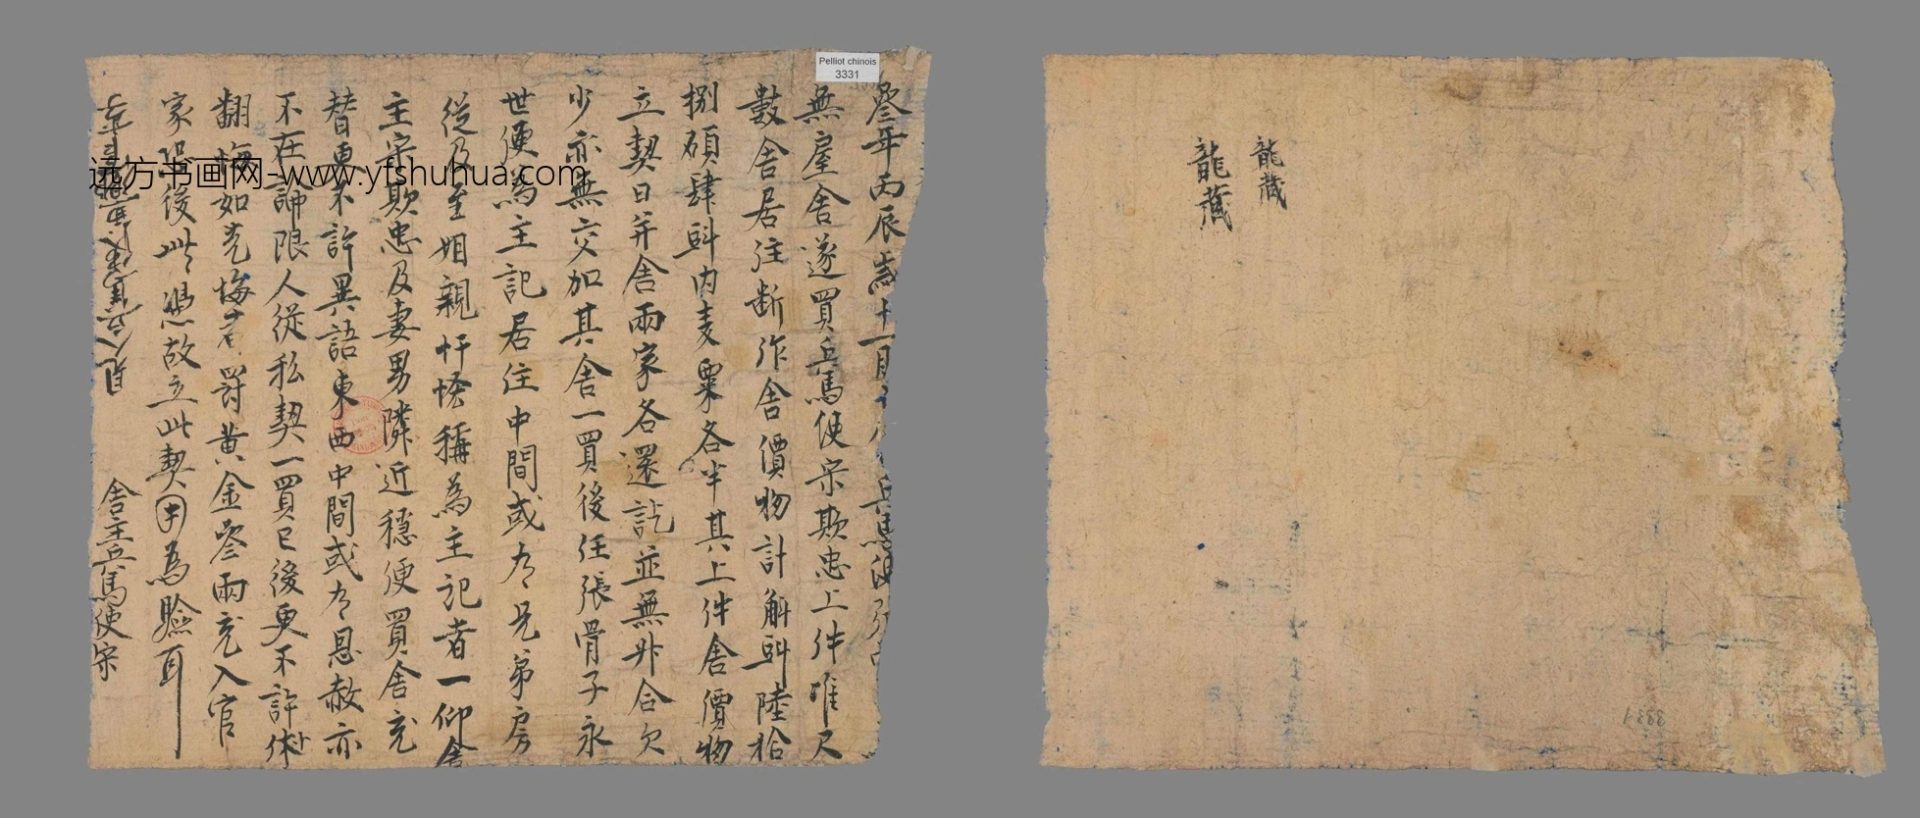 Pelliot chinois
3331
叄年丙辰歲十一月
兵馬使張
無屋舍遂買兵馬使宋欺忠上件准尺
數舍居住断作舍價物計斛㪷陸拾
捌碩肆㪷内麦粟各半其上件舍價物
立契日并舍兩家各還訖並無升合欠
少亦無交加其舍一買後任張骨子永
世便為主記居住中間或有兄弟房
從及至姻親忏恡稱為主記者一仰舍
主宋欺忠及妻男隣近穩便買舍充
替更不許異語東西中間或有恩赦亦
不在論限人從私契一買已後更不許休
翻悔如先悔者罸黄金叄兩充入官
家恐後無憑故立此契用為驗耳
舍主兵馬使宋
远方书画网-www.yfshuhua.com
龍藏
龍藏
3331